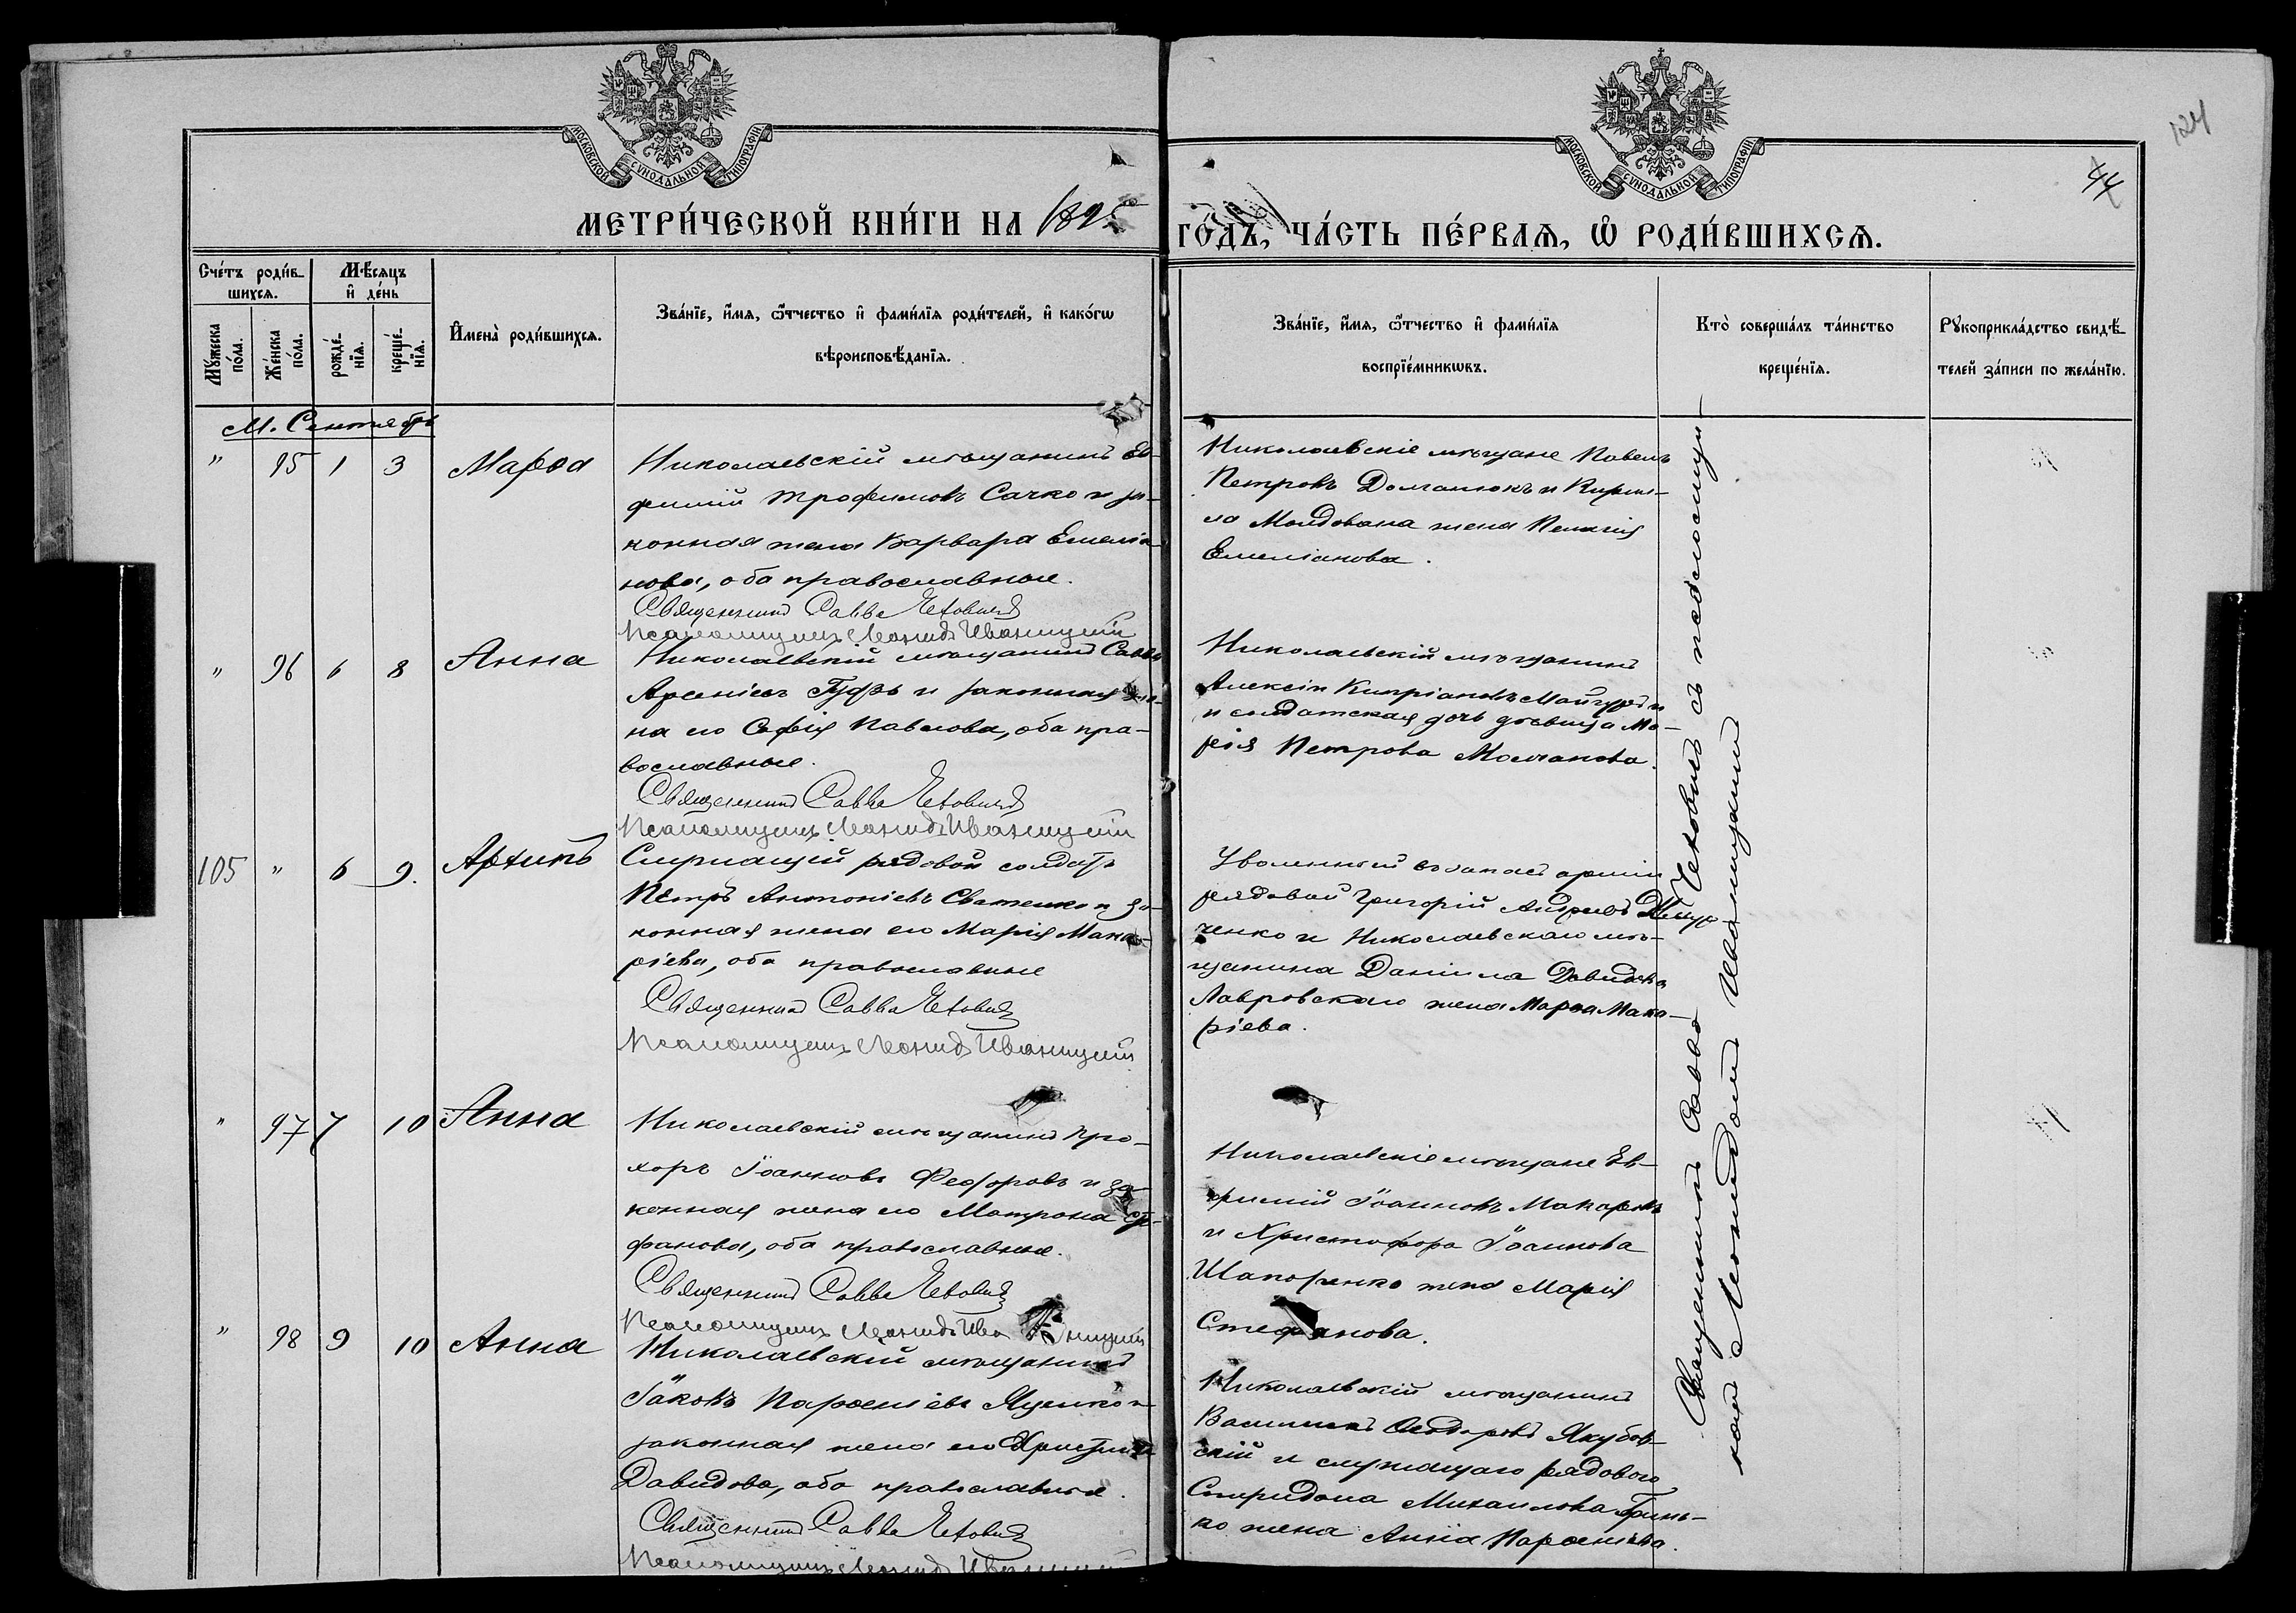 124
44
МОСКОВСКОЙ СѴНОДАЛЬНОЙ ТИПОГРАФІИ
МОСКОВСКОЙ СѴНОДАЛЬНОЙ ТИПОГРАФІИ
МЕТРИ́ЧЕСКОЙ КНИ́ГИ НА 1895
ГО́ДЪ, ЧА́СТЬ ПЕ́РВАѦ, Ѽ РОДИ́ВШИХСѦ.
Сче́тъ роди́в-
шихсѧ.
Мꙋ́жеска по́ла.
Же́нска по́ла.
Мѣ́сѧцъ
и҆ де́нь
рожде́-нїѧ.
креще́-нїѧ.
И҆мена̀ роди́вшихсѧ.
Зва́нїе, и҆́мѧ, ѻ҆́тчество и҆ фами́лїѧ роди́телей, и҆ како́гѡ
вѣроисповѣ́данїѧ.
Зва́нїе, и҆́мѧ, ѻ҆́тчество и҆ фами́лїѧ
воспрїе́мникѡвъ.
Кто̀ соверша́лъ та́инство
креще́нїѧ.
Рꙋкоприкла́дство свидѣ́-
телей за́писи по жела́нїю.
М. Сентябрь
" 95 1 3 Марѳа
Николаевскій мѣщанинъ Ев-
фимій Трофимовъ Сачко и за-
конная жена Варвара Емеліа-
нова, оба православные.
Священникъ Савва Чеховичъ
Псаломщикъ Леонидъ Иваницкій
Николаевскіе мѣщане Павелъ
Петровъ Долганюкъ и Кирил-
ла Молдована жена Пелагія
Емеліанова.
" 96 6 8 Анна
Николаевскій мѣщанинъ Савва
Арсеніевъ Гудзь и законная же-
на его Софія Павлова, оба пра-
вославные.
Священникъ Савва Чеховичъ
Псаломщикъ Леонидъ Иваницкій
Николаевскій мѣщанинъ
Алексій Кипріановъ
и солдатская дочь дѣвица Ма-
рія Петрова Молчанова.
105 " 6 9. Архипъ
Служащій рядовой солдатъ
Петръ Антоніевъ и за-
конная жена его Марія Мака-
ріева, оба православные
Священникъ Савва Чеховичъ
Псаломщикъ Леонидъ Иваницкій
Уволенный въ запасъ арміи
рядовой Григорій Андреевъ
ченко и Николаевскаго мѣ-
щанина Даніила Давидова
Лавровскаго жена Марѳа Мака-
ріева.
" 97 7 10 Анна
Николаевскій мѣщанинъ Про-
хоръ Іоанновъ Феодоровъ и за-
конная жена его Матрона Сте-
фанова, оба православные.
Священникъ Савва Чеховичъ
Псаломщикъ Леонидъ Иваницкій
Николаевскіе мѣщане Ев-
фимій Іоанновъ Макаровъ
и Христофора Іоаннова
Шапоренко жена Марія
Стефанова.
" 98 9 10 Анна
Николаевскій мѣщанинъ
Іаковъ Парѳеніевъ Яценко и
законная жена его Христина
Давидова, оба православные.
Священникъ Савва Чеховичъ
Псаломщикъ Леонидъ Иваницкій
Николаевскій мѣщанинъ
Василій Ѳеодоровъ Якубов-
скій и служащаго рядового
Спиридона Михаилова Гринь-
ко жена Анна Парѳеніева.
Священникъ Савва Чеховичъ съ псаломщи-
комъ Леонидомъ Иваницкимъ